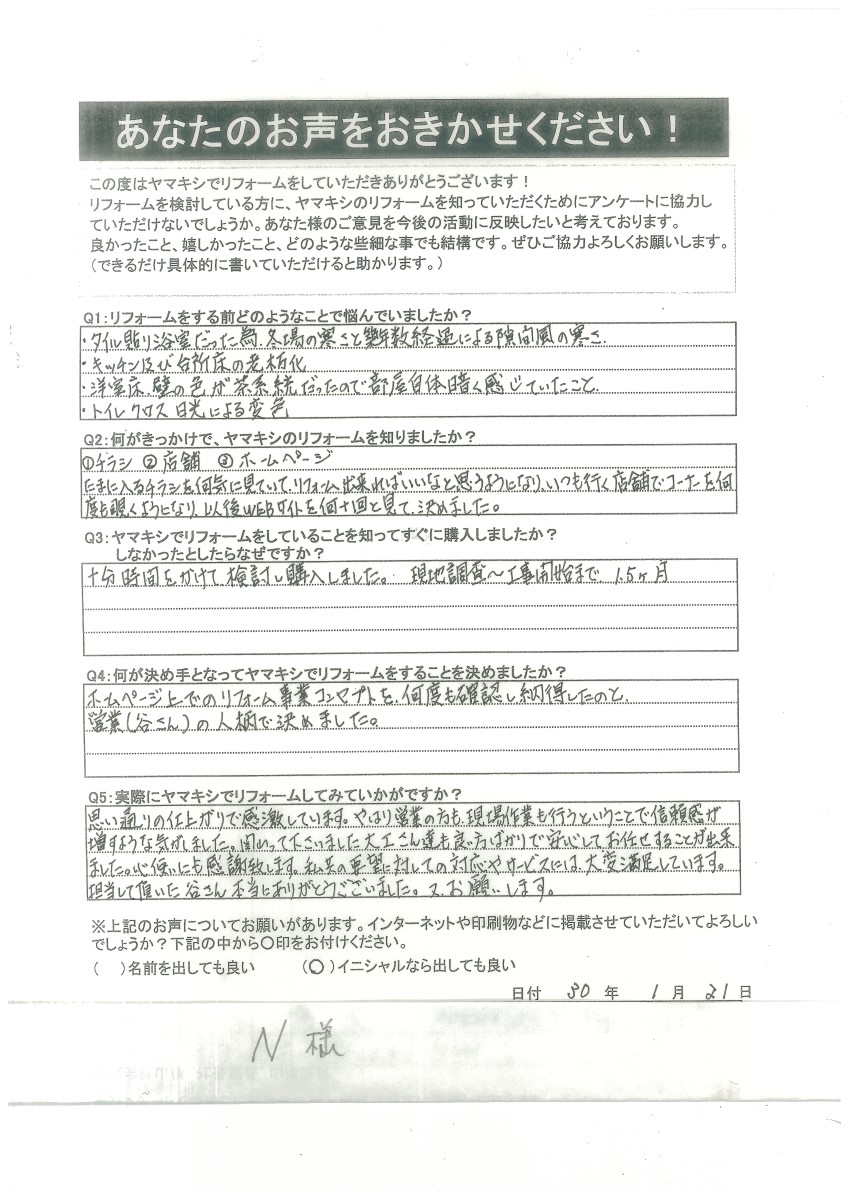 あなたのお声をおきかせください！
この度はヤマキシでリフォームをしていただきありがとうございます！
リフォームを検討している方に、ヤマキシのリフォームを知っていただくためにアンケートに協力し
ていただけないでしょうか。あなた様のご意見を今後の活動に反映したいと考えております。
良かったこと、嬉しかったこと、どのような些細な事でも結構です。ぜひご協力よろしくお願いします。
（できるだけ具体的に書いていただけると助かります。）
Q1：リフォームをする前どのようなことで悩んでいましたか？
・タイル貼り浴室だった為、冬場の寒さと築年数経過による隙間風の寒さ.
・キッチン及び台所床の老朽化
・洋室床、壁の色が茶系統だったので部屋自体暗く感じていたこと.
・トイレクロス日光による変色
Q2：何がきっかけで、ヤマキシのリフォームを知りましたか？
①チラシ ②店舗 ③ホームページ
たまに入るチラシを何気に見ていて、リフォーム出来ればいいなと思うようになり、いつも行く店舗でコーナーを何
度も覗くようになり、以後WEBサイトを何十回と見て、決めました。
Q3：ヤマキシでリフォームをしていることを知ってすぐに購入しましたか？
しなかったとしたらなぜですか？
十分時間をかけて検討し購入しました。 現地調査〜工事開始まで 1.5ヶ月
Q4：何が決め手となってヤマキシでリフォームをすることを決めましたか？
ホームページ上でのリフォーム事業コンセプトを、何度も確認し納得したのと、
営業（谷さん）の人柄で決めました。
Q5：実際にヤマキシでリフォームしてみていかがですか？
思い通りの仕上がりで感激しています。やはり営業の方も、現場作業も行うということで信頼感が
増すような気がしました。関わって下さいました大工さん達も良い方ばかりで安心してお任せすることが出来
ました。心使いにも感謝致します。私共の要望に対しての対応やサービスには、大変満足しています。
担当して頂いた谷さん本当にありがとうございました。又、お願いします。
※上記のお声についてお願いがあります。インターネットや印刷物などに掲載させていただいてよろしい
でしょうか？下記の中から〇印をお付けください。
（ ）名前を出しても良い （〇）イニシャルなら出しても良い
日付 30 年 1 月 21 日
N 様